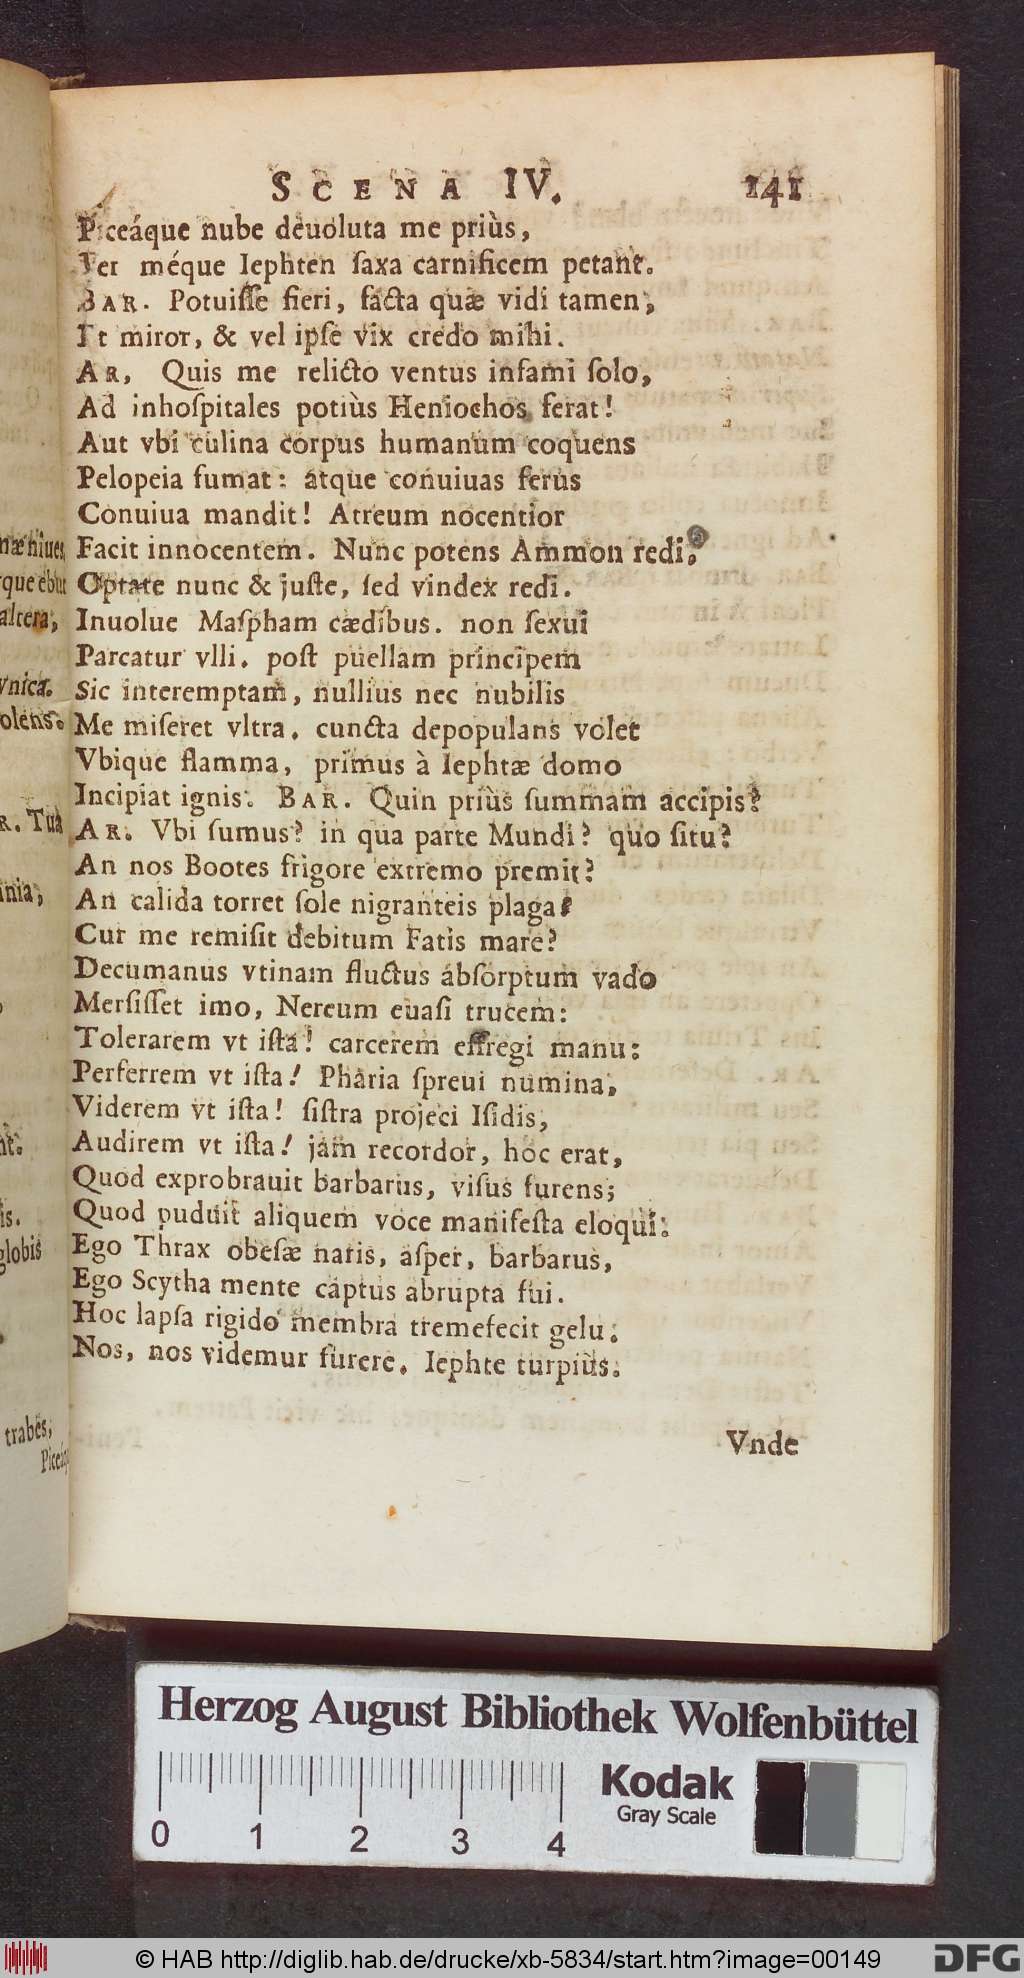 SCENA IV. 141
Piceáque nube deuoluta me priùs,
Ter méque Iephten ſaxa carnificem petant.
BAR. Potuiſſe fieri, facta quæ vidi tamen,
Et miror, & vel ipſe vix credo mihi.
AR, Quis me relicto ventus infami ſolo,
Ad inhoſpitales potiùs Heniochos ferat!
Aut vbi culina corpus humanum coquens
Pelopeia fumat: atque conuiuas ferus
Conuiua mandit! Atreum nocentior
Facit innocentem. Nunc potens Ammon redi,
Optate nunc & juſte, ſed vindex redi.
Inuolue Maſpham cædibus. non ſexui
Parcatur vlli. poſt puellam principem
Sic interemptam, nullius nec nubilis
Me miſeret vltra. cuncta depopulans volet
Vbique flamma, primus à Iephtæ domo
Incipiat ignis. BAR. Quin priùs ſummam accipis?
AR. Vbi ſumus? in qua parte Mundi? quo ſitu?
An nos Bootes frigore extremo premit?
An calida torret ſole nigranteis plaga?
Cur me remiſit debitum Fatis mare?
Decumanus vtinam fluctus abſorptum vado
Merſiſſet imo, Nereum euaſi trucem:
Tolerarem vt iſta! carcerem effregi manu:
Perferrem vt iſta! Pharia ſpreui numina,
Viderem vt iſta! ſiſtra projeci Iſidis,
Audirem vt iſta! jam recordor, hoc erat,
Quod exprobrauit barbarus, viſus furens;
Quod puduit aliquem voce manifeſta eloqui:
Ego Thrax obeſæ naris, aſper, barbarus,
Ego Scytha mente captus abrupta fui.
Hoc lapſa rigido membra tremefecit gelu:
Nos, nos videmur furere. Iephte turpiùs.
Vnde
næ niues,
altera;
vnica.
olens.
R. Tua
inia;
is.
globis
trabes,
Herzog August Bibliothek Wolfenbüttel
Kodak
Gray Scale
0 1 2 3 4
© HAB http://diglib.hab.de/drucke/xb-5834/start.htm?image=00149
DFG